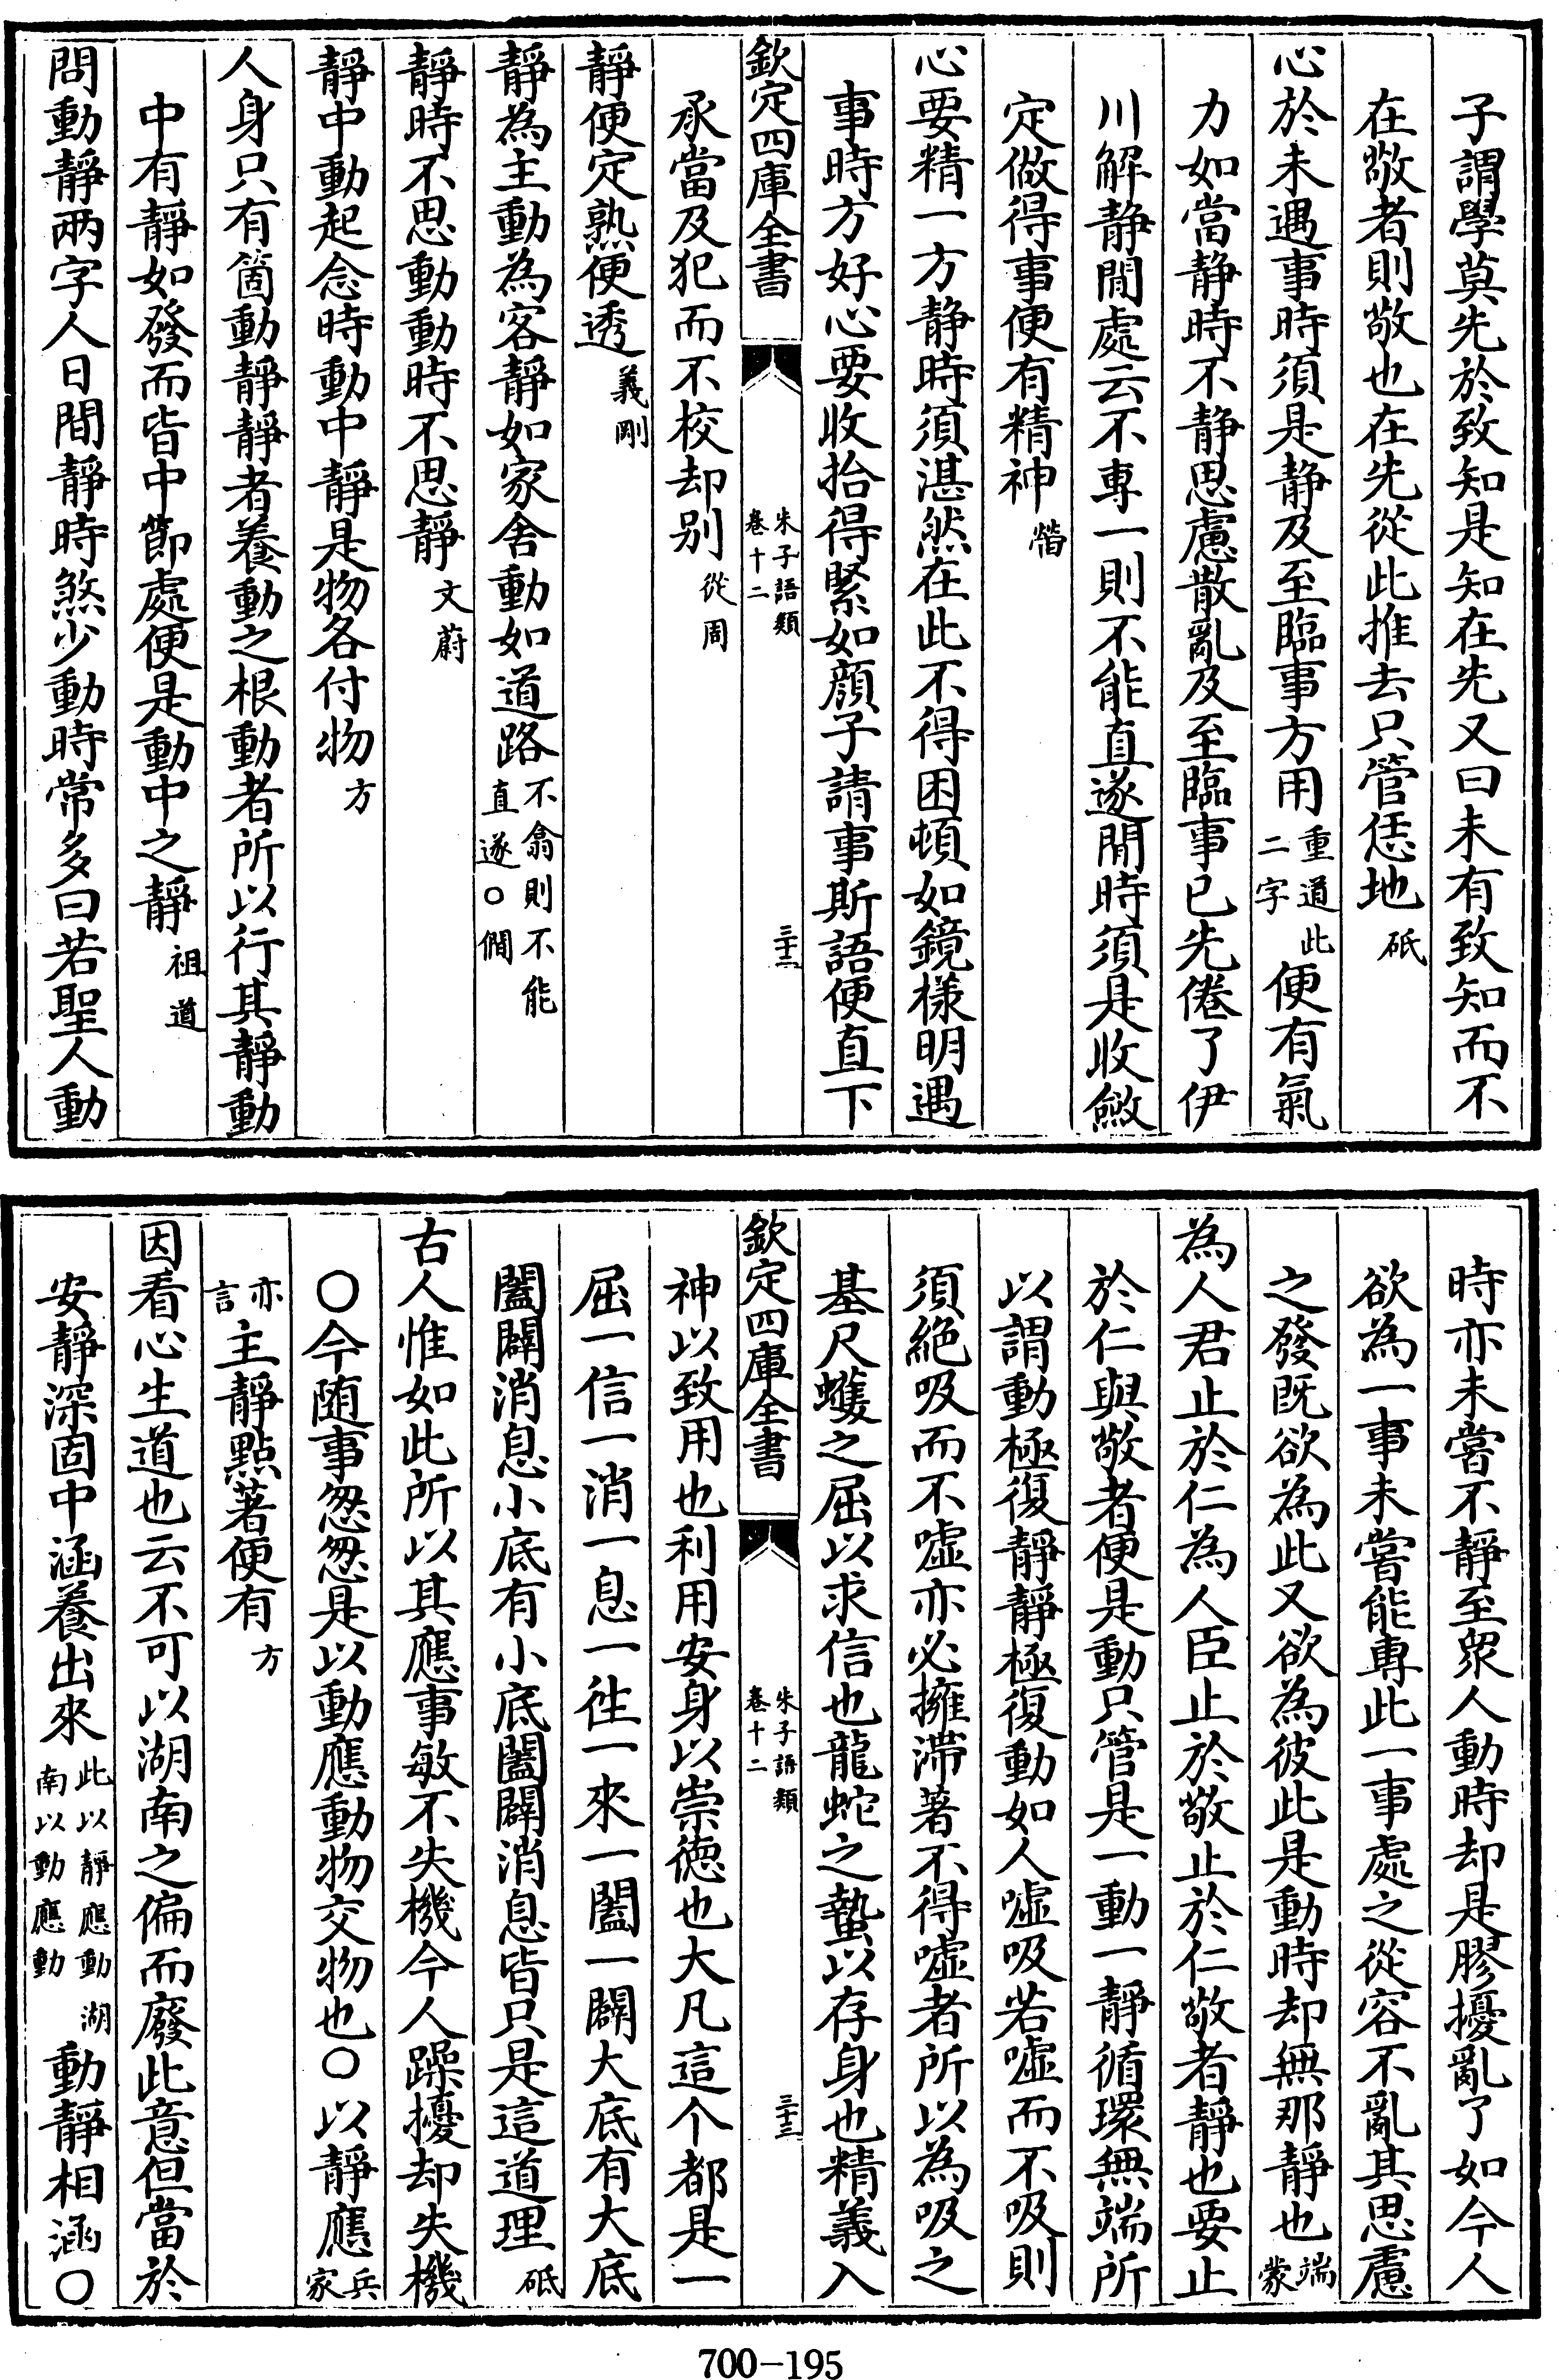 子謂學莫先於致知是知在先又曰未有致知而不
在敬者則敬也在先從此推去只管恁地砥
心於未遇事時須是静及至臨事方用重道此二字便有氣
力如當静時不静思慮散亂及至臨事已先倦了伊
川解静閒處云不專一則不能直遂閒時須是收斂
定做得事便有精神㽦
心要精一方静時須湛然在此不得困頓如鏡樣明遇
事時方好心要收拾得緊如顔子請事斯語便直下
欽定四庫全書
朱子語類
卷十二
三十二
承當及犯而不校却别從周
靜便定熟便透義剛
靜為主動為客靜如家舍動如道路不翕則不能直遂○僩
靜時不思動動時不思靜文蔚
靜中動起念時動中靜是物各付物方
人身只有箇動靜靜者養動之根動者所以行其靜動
中有靜如發而皆中節處便是動中之靜祖道
問動靜两字人日間靜時煞少動時常多曰若聖人動
時亦未嘗不靜至衆人動時却是膠擾亂了如今人
欲為一事未嘗能專此一事處之從容不亂其思慮
之發既欲為此又欲為彼此是動時却無那靜也端蒙
為人君止於仁為人臣止於敬止於仁敬者靜也要止
於仁與敬者便是動只管是一動一靜循環無端所
以謂動極復靜靜極復動如人噓吸若噓而不吸則
須絶吸而不噓亦必擁滯著不得噓者所以為吸之
基尺蠖之屈以求信也龍蛇之蟄以存身也精義入
欽定四庫全書
朱子語類
卷十二
三十三
神以致用也利用安身以崇徳也大凡這个都是一
屈一信一消一息一徃一來一闔一闢大底有大底
闔闢消息小底有小底闔闢消息皆只是這道理砥
古人惟如此所以其應事敏不失機今人躁擾却失機
○今随事怱怱是以動應動物交物也○以靜應兵家
亦言主靜點著便有方
因看心生道也云不可以湖南之偏而廢此意但當於
安靜深固中涵養出來此以靜應動湖南以動應動動靜相涵○
700-195